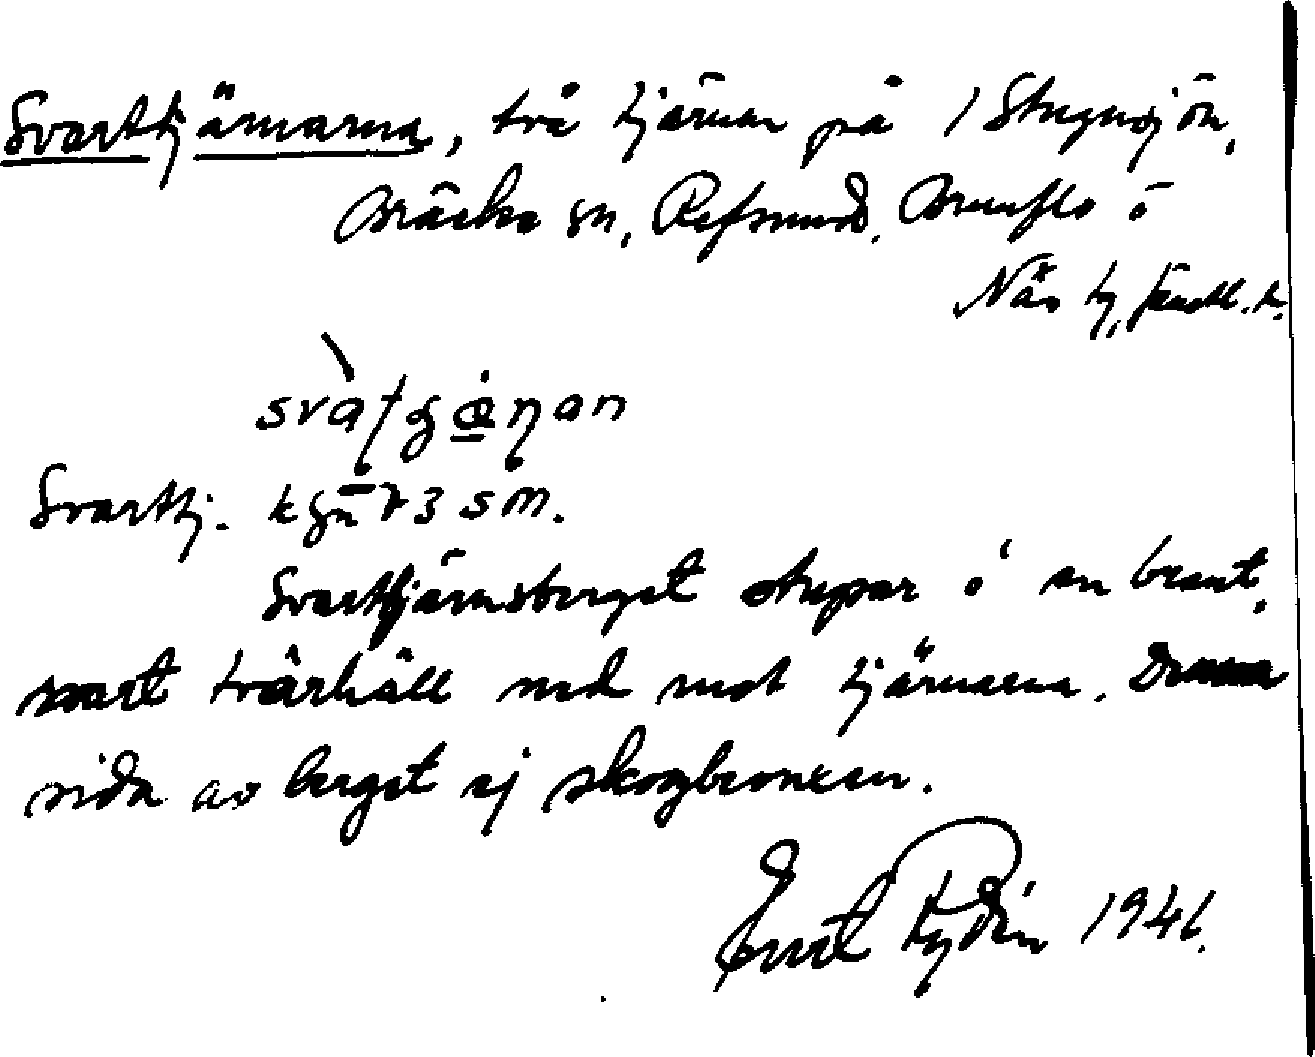 Svarttjärnarna, två tjärnar på 1 Stugusjön,
Bräcke sn, Refsunds, Brunflo o
Näs tg, Jämtl. l.
svàʈɕæ̀ɳan
Svarttj.
Svarttjärnsberget stupar i en brant,
svart tvärhäll ned mot tjärnarna. Denna
sida av berget ej skogbevuxen.
Ernst Rydén 1941.